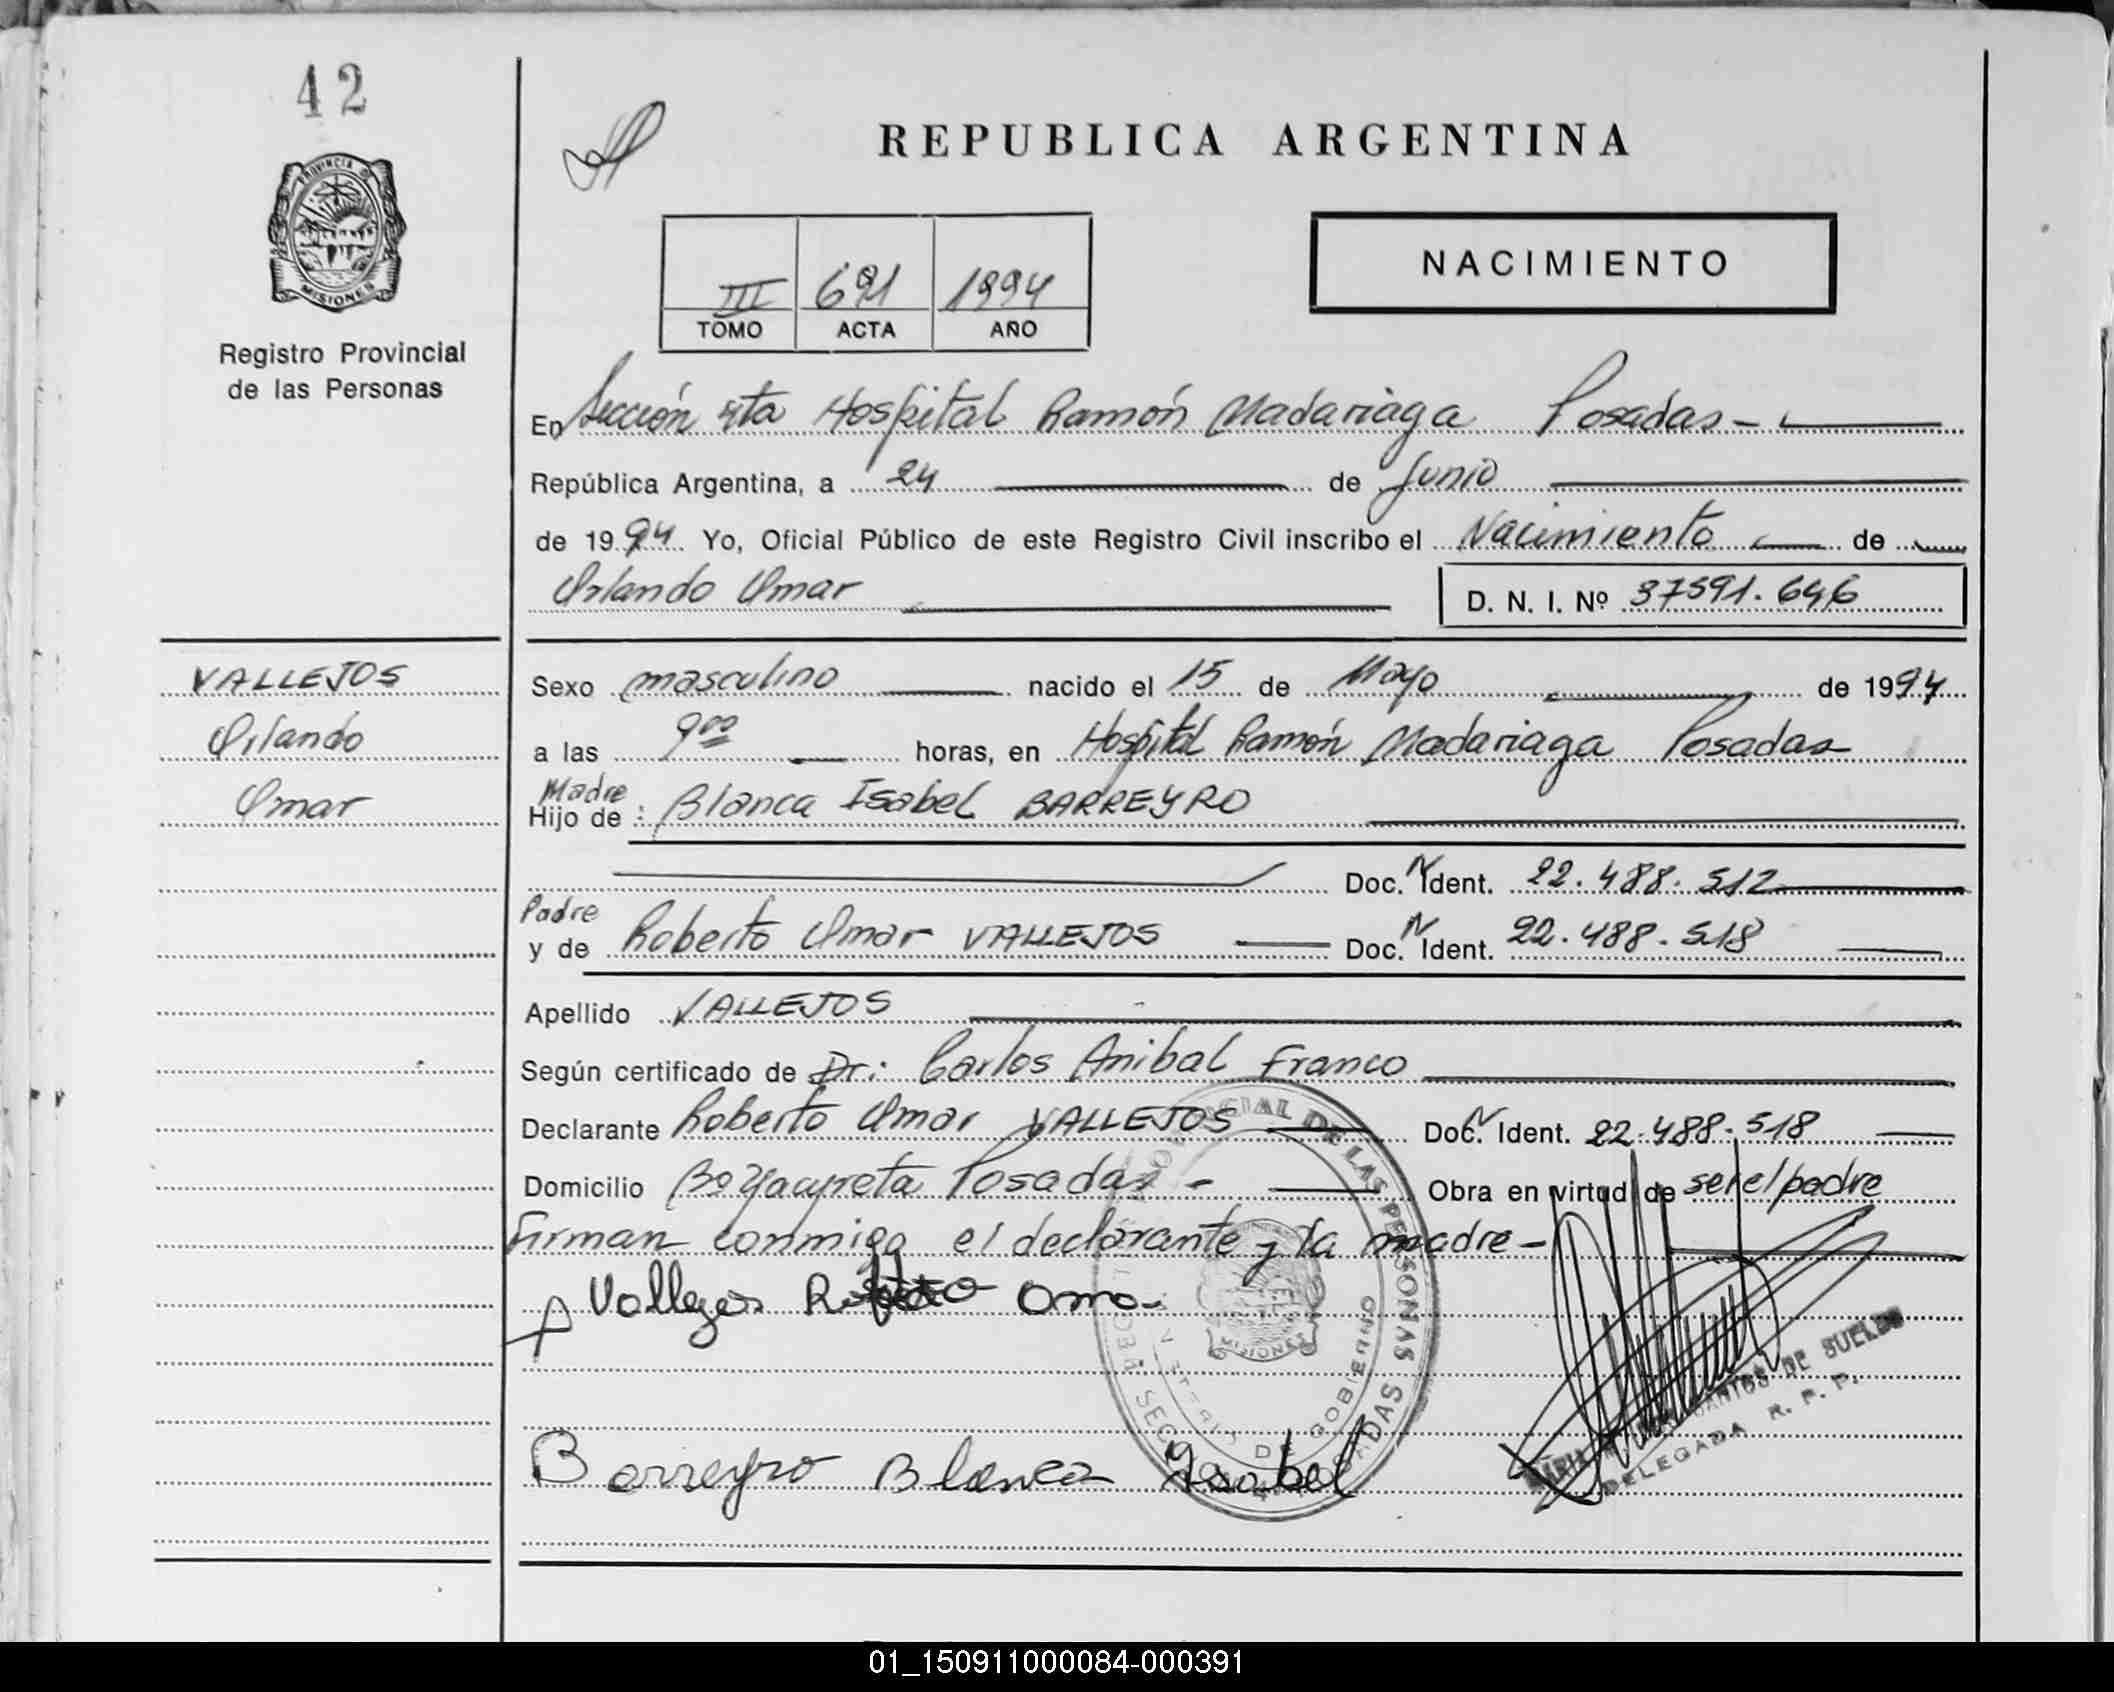 42
PROVINCIA DE
MISIONES
Registro Provincial
de las Personas
REPUBLICA ARGENTINA
III 691 1994
TOMO ACTA AÑO
NACIMIENTO
En Sección 4ta Hospital Ramón Madariaga Posadas -
República Argentina, a 24 de Junio
de 1994 Yo, Oficial Público de este Registro Civil inscribo el Nacimiento de
Orlando Omar D. N. I. Nº 37591.646
VALLEJOS
Orlando
Omar
Sexo masculino nacido el 15 de Mayo de 1994
a las 9 00 horas, en Hospital Ramón Madariaga Posadas
Madre
Hijo de : Blanca Isabel BARREYRO
Doc. N Ident. 22.488.512
Padre
y de Roberto Omar VALLEJOS Doc. N Ident. 22.488.518
Apellido VALLEJOS
Según certificado de Dr: Carlos Anibal Franco
Declarante Roberto Omar VALLEJOS Doc. N Ident. 22.488.518
Domicilio Bo Yacyreta Posadas - Obra en virtud de ser el padre
Firman conmigo el declarante y la madre -
Vallejos Roberto Omar
Barreyro Blanca Isabel
DE LAS PERSONAS
DE GOBIERNO
MISIONES
DE SUELDO
DELEGADA R. P. P.
01_150911000084-000391